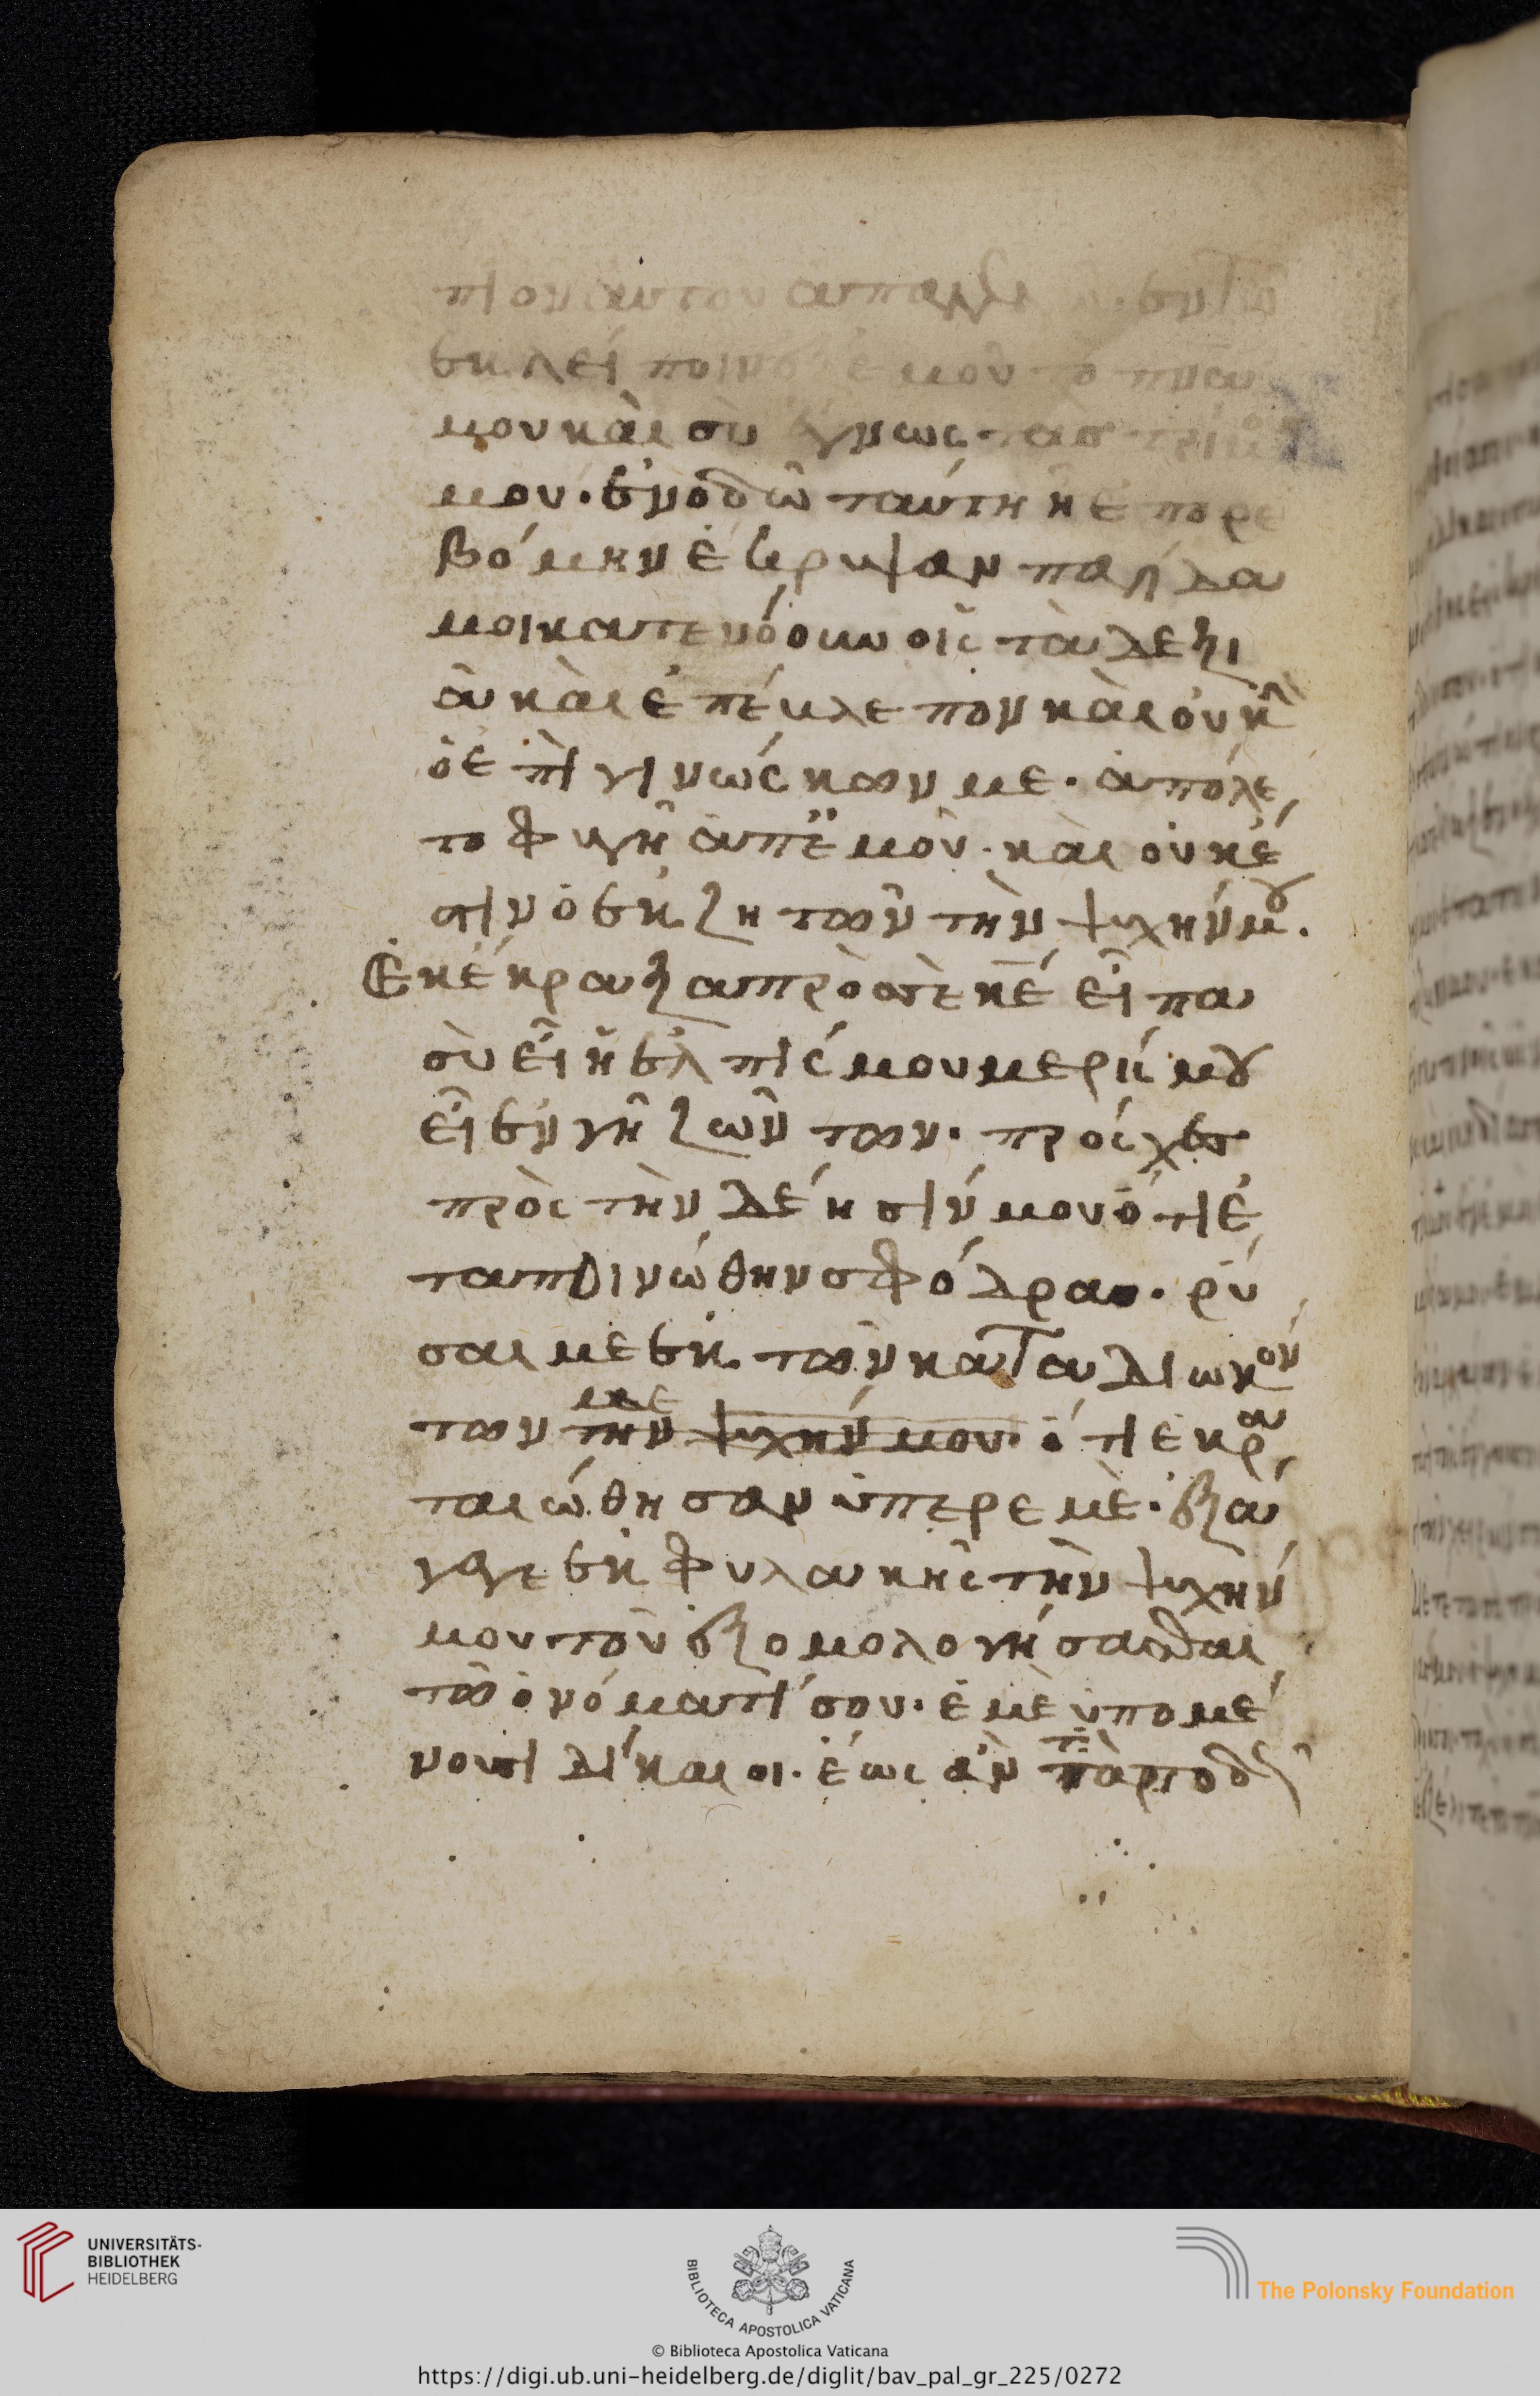 πιον αυτου απαγγελῶ. ἐν τῶ
ἐκλείποιν ἐξ ἐμοῦ τὸ πνα
μου καὶ σὺ ἔγνως τὰσ τρίβους
μου. ἐν ὁδῶ ταύτη ἠ ἐπορε
βόμην ἐκρυψαν παγήδα
μοι κατενόουν οῖς τὰ δεξι
ὰ καὶ ἐπέυλεπον καὶ οὐκ ἦν
ὁ ἐπιγινώσκων με. ἀπόλε
το φυγῆ ἀπ̈ ἐμοῦ. καὶ οὐκ έ
στιν ὁ ἐκζητῶν τὴν ψυχήν μου.
Ἐκέκραξα πρὸσ σὲ κε εἶπα
σὺ εἶ ἡ ἐλπίς μου μερίς μου
εἶ ἐν γῆ ζώντων. πρόσχες
πρὸς τὴν δέησίν μου ὅτι ἐ
ταπινώθην σφόδρα. ρύ
σαι με ἐκ τῶν καταδιωκόν
των με τὴν ψυχήν μου. ὅτι ἐκρα
ταιώθησαν ὑπερ εμὲ. ἐξά
γαγε ἐκ φυλακῆς τὴν ψυχήν
μου τοῦ ἐξομολογήσασθαι
τῶ ὀνόματί σου. ἐμὲ ὑπομέ
νουσι δίκαιοι. ἕως ἂν
UNIVERSITÄTS-
BIBLIOTHEK
HEIDELBERG
BIBLIOTECA APOSTOLICA VATICANA
The Polonsky Foundation
© Biblioteca Apostolica Vaticana
https://digi.ub.uni-heidelberg.de/diglit/bav_pal_gr_225/0272